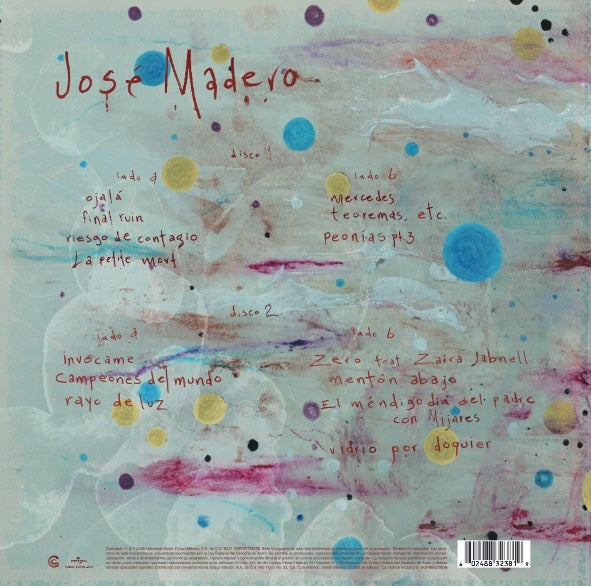 José Madero
disco 1
lado a
ojalá
final ruin
riesgo de contagio
La petite mort
lado b
mercedes
teoremas, etc.
peonías pt.3
disco 2
lado a
invócame
campeones del mundo
rayo de luz
lado b
Zero feat. Zaira Jabnell
mentón abajo
El méndigo día del padre
con Mijares
vidrio por doquier
6 02488 32381 9